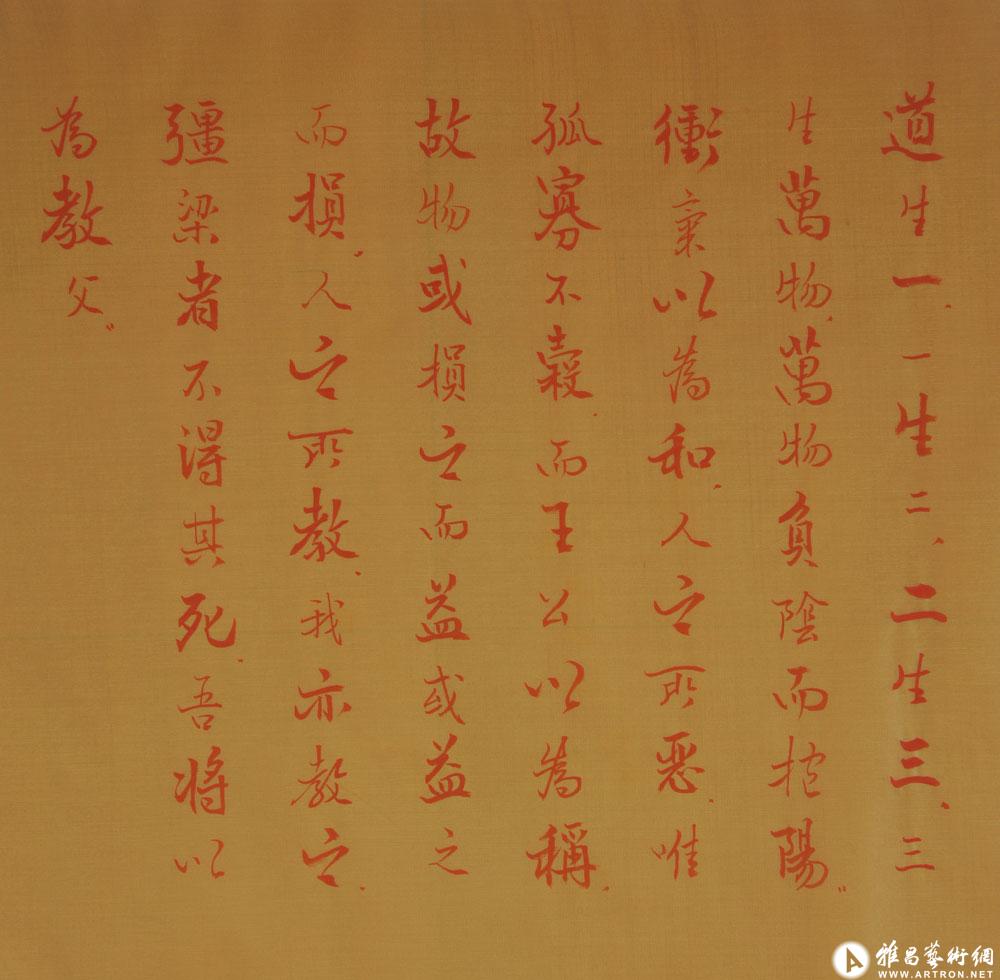 道生一、一生二、二生三、三
生萬物、萬物負陰而抱陽。
衝氣以為和、人之所惡、唯
孤寡不穀、而王公以為稱、
故物或損之而益或益之
而損、人之所教、我亦教之、
彊梁者不得其死、吾將以
為教父。
雅昌藝術網
WWW.ARTRON.NET